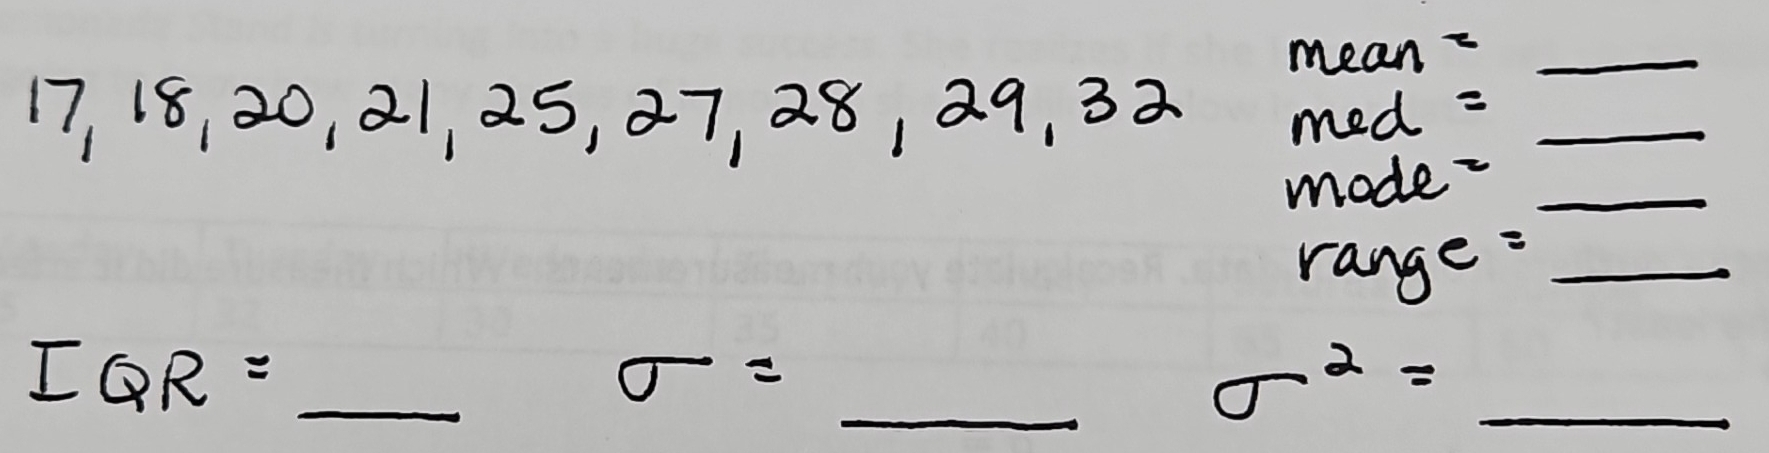 17, 18, 20, 21, 25, 27, 28, 29, 32
mean = ___
med = ___
mode = ___
range = ___
IQR = ___ σ = ___ σ² = ___